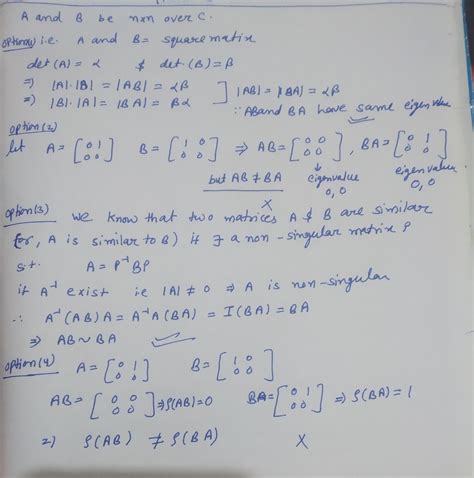 A and B be nxn over C.
option(1) i.e. A and B = square matix
det(A) = α & det(B) = β
⇒ |A|·|B| = |AB| = αβ
⇒ |B|·|A| = |BA| = βα ] |AB| = |BA| = αβ
∵ AB and BA have same eigen value
option(2)
let A = [0 1; 0 0] B = [1 0; 0 0] ⇒ AB = [0 0; 0 0], BA = [0 1; 0 0]
but AB ≠ BA eigenvalue 0, 0 eigen value 0, 0
X
option(3) we know that two matrices A & B are similar
(or, A is similar to B) if ∃ a non-singular matrix P
s.t. A = P⁻¹BP
if A⁻¹ exist ie |A| ≠ 0 ⇒ A is non-singular
∴ A⁻¹(AB)A = A⁻¹A(BA) = I(BA) = BA
⇒ AB ~ BA
option(4) A = [0 1; 0 0] B = [1 0; 0 0]
AB = [0 0; 0 0] ⇒ ρ(AB) = 0 BA = [0 1; 0 0] ⇒ ρ(BA) = 1
⇒ ρ(AB) ≠ ρ(BA) X